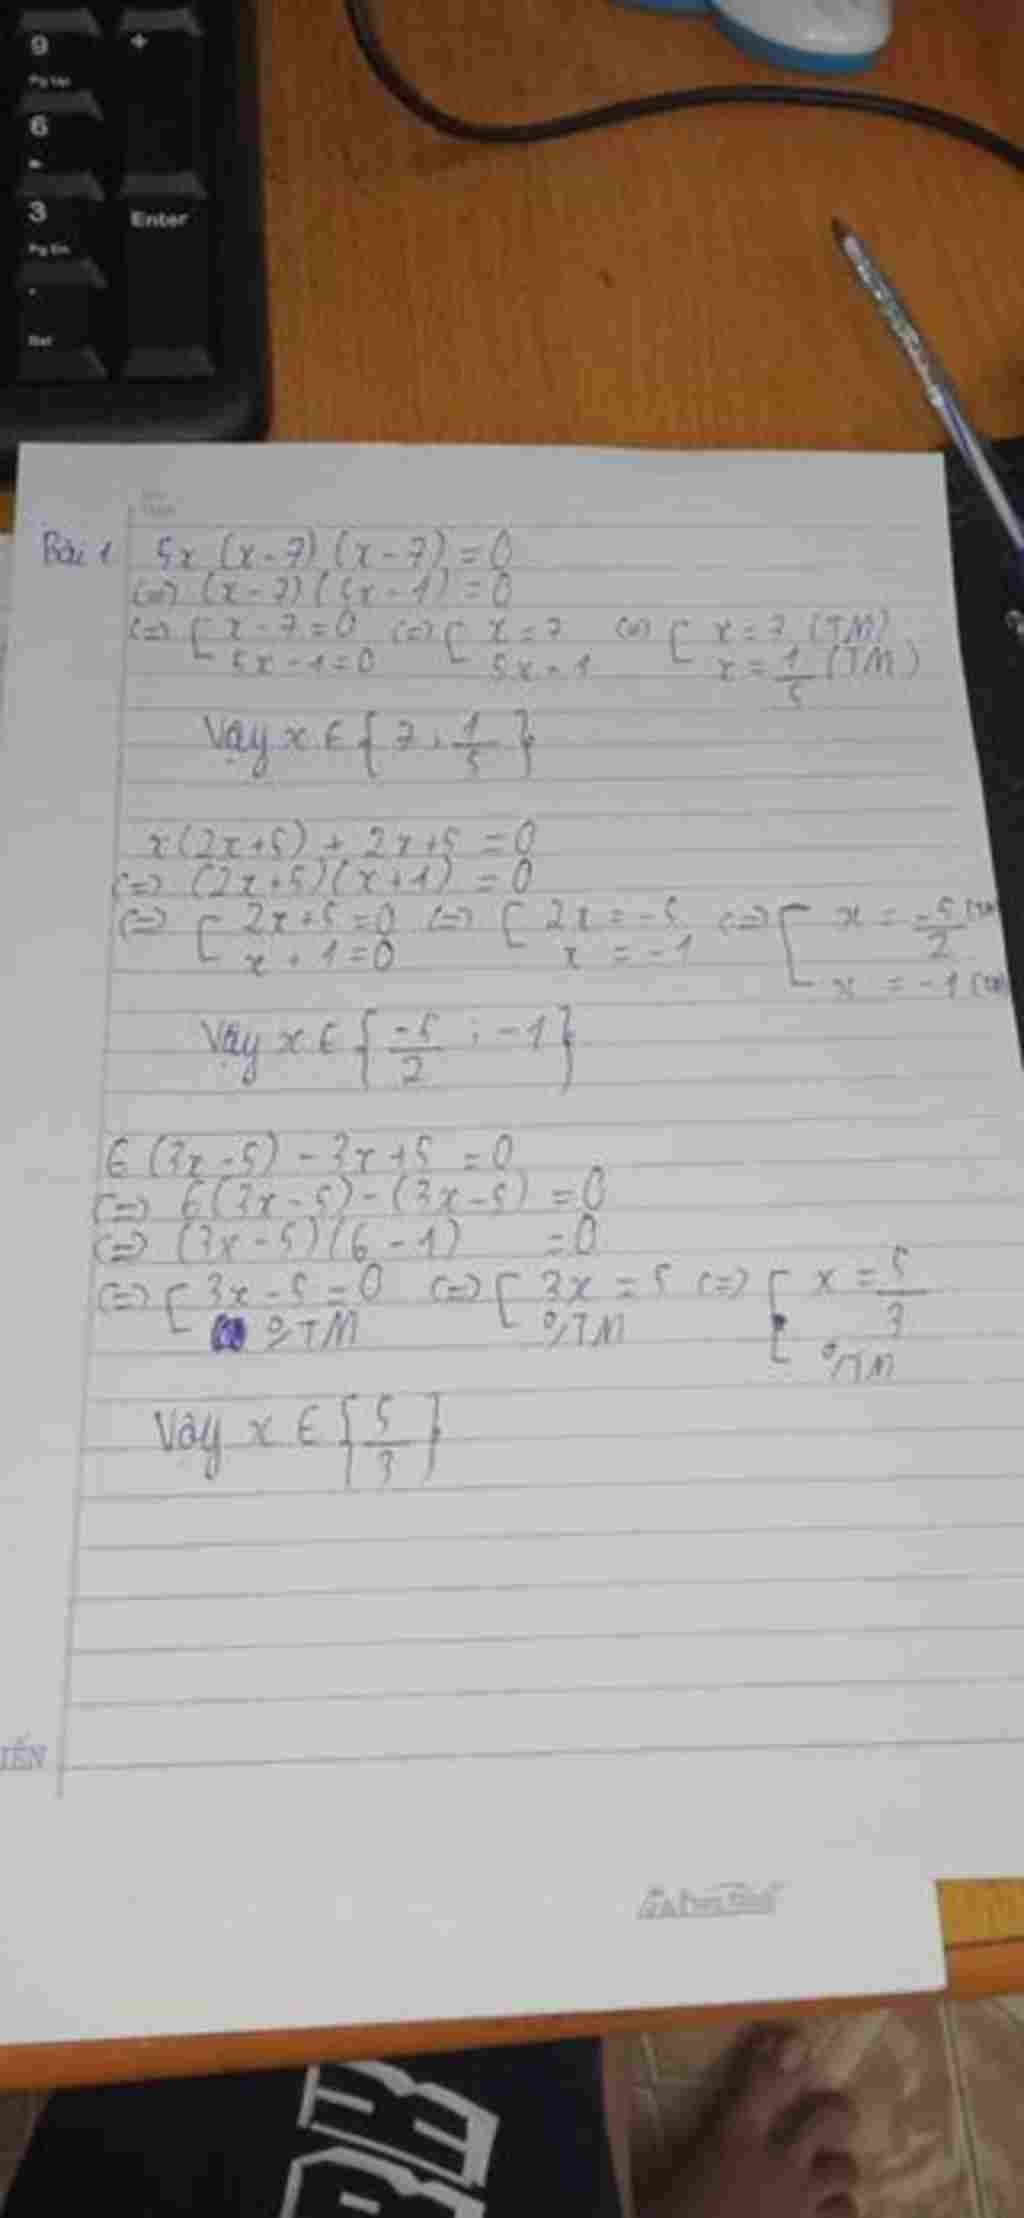 9
+
Pg Up
6
3
Enter
Pg Dn
.
Del
Bài 1 5x (x-7) (x-7) = 0
(=) (x-7) (5x-1) = 0
(=) [ x-7=0 (=) [ x=7 (=) [ x=7 (TM)
5x-1=0 5x=1 x=1/5 (TM)
Vậy x ∈ { 7 ; 1/5 }
x(2x+5) + 2x+5 = 0
(=) (2x+5)(x+1) = 0
(=) [ 2x+5=0 (=) [ 2x = -5 (=) [ x = -5/2 (TM)
x+1=0 x = -1 x = -1 (TM)
Vậy x ∈ { -5/2 ; -1 }
6 (3x-5) - 3x+5 = 0
(=) 6(3x-5)-(3x-5) = 0
(=) (3x-5)(6-1) = 0
(=) [ 3x-5=0 (=) [ 3x = 5 (=) [ x = 5/3
0/TM 0/TM 0/TM
Vậy x ∈ { 5/3 }
IẾN